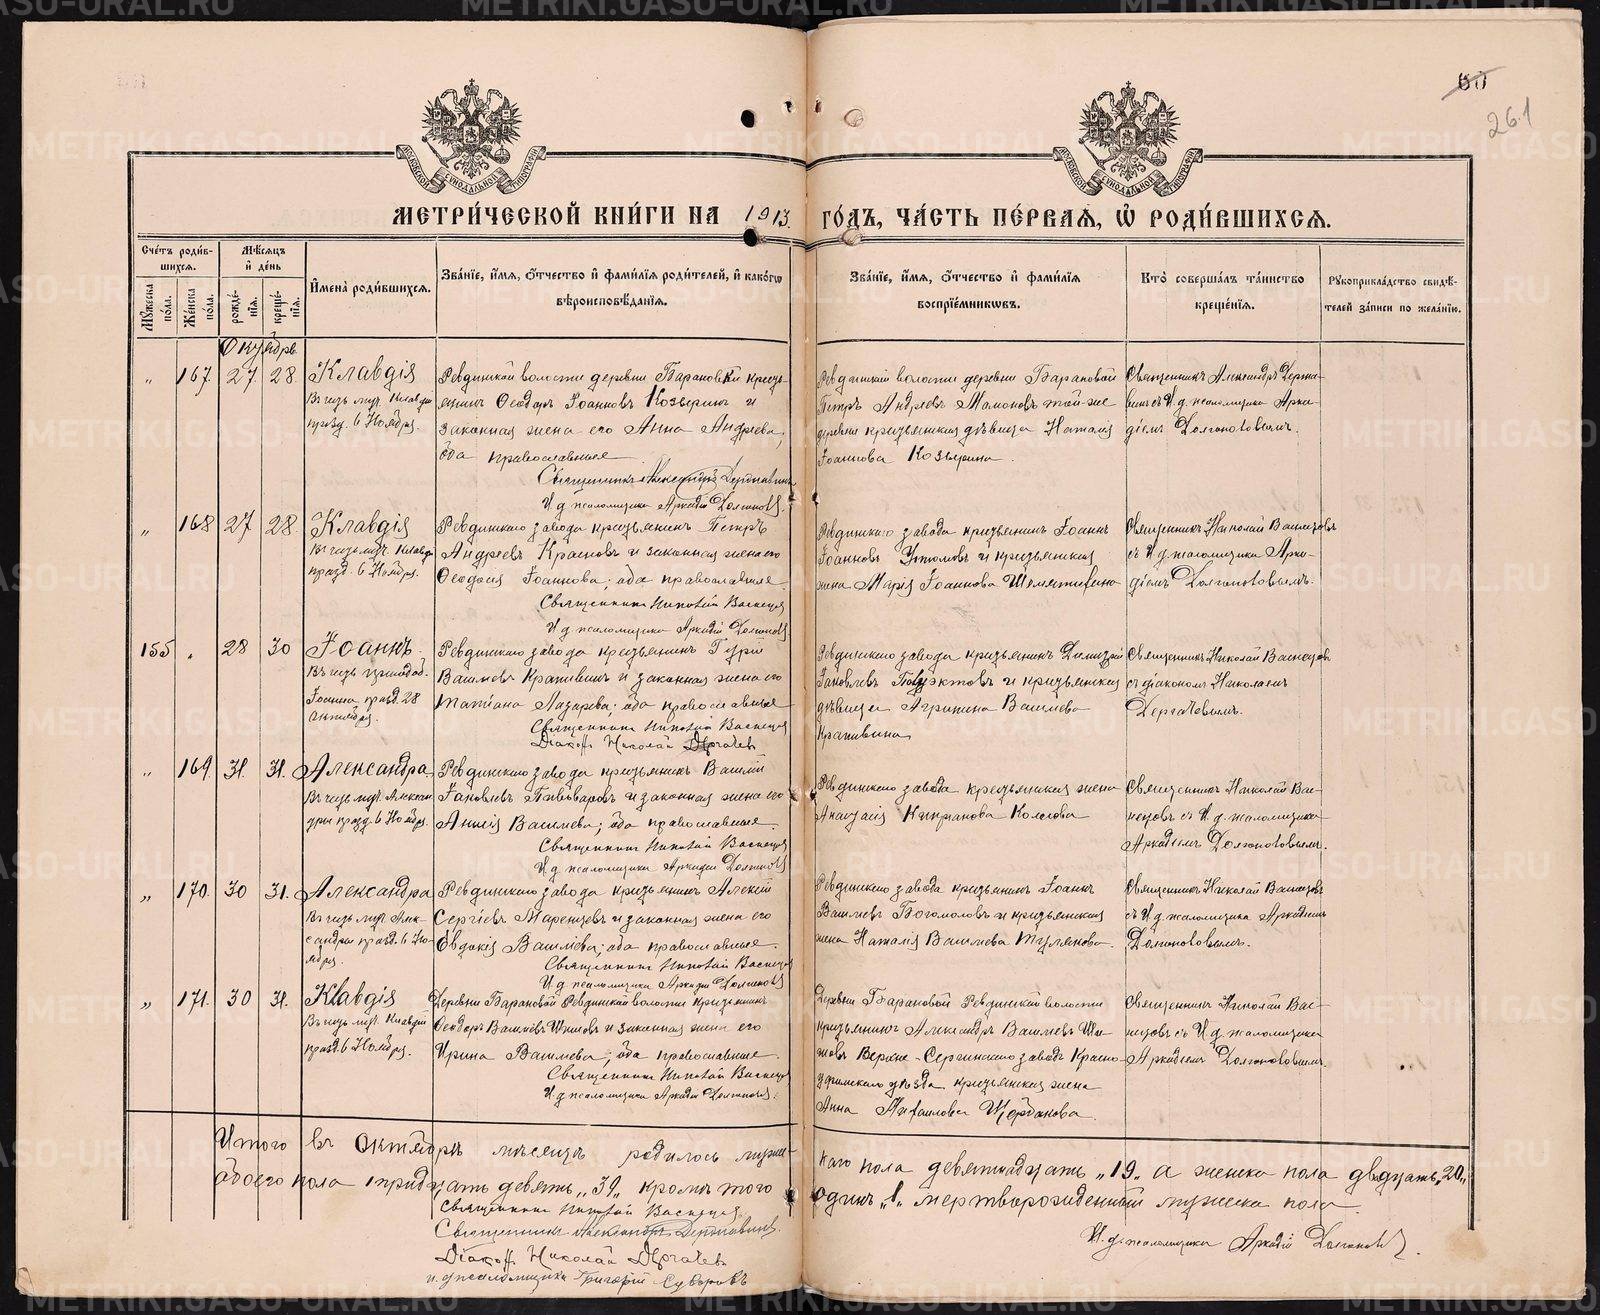 60
261
МЕТРИ́ЧЕСКОЙ КНИ́ГИ НА 1913 ГО́ДЪ, ЧА́СТЬ ПЕ́РВАЯ, Ѡ҆ РОДИ́ВШИХСЯ.
Сче́тъ роди́вшихся.
Мꙋ́жеска по́ла.
Же́нска по́ла.
Мѣ́сяцъ и҆ де́нь
рожде́нїя.
креще́нїя.
И҆мена̀ роди́вшихся.
Зва́нїе, и҆́мя, ѻ҆́тчество и҆ фами́лїя роди́телей, и҆ како́гѡ вѣроисповѣ́данїя.
Зва́нїе, и҆́мя, ѻ҆́тчество и҆ фами́лїя воспрїе́мникѡвъ.
Кто̀ соверша́лъ та́инство креще́нїя.
Рꙋкоприкла́дство свидѣ́телей за́писи по жела́нїю.
Октябрь
" 167. 27 28. Клавдія
Въ честь муч. Клавдіи
празд. 6 Ноября.
Ревдинской волости деревни Барановки кресть-
янинъ Ѳеодоръ Іоанновъ Козыринъ и
законная жена его Анна Андреева,
оба православные
Священникъ Александръ Державинъ
И. д. псаломщика Аркадій Долгановъ
Ревдинской волости деревни Барановой
Петръ Андреевъ Мамоновъ той-же
деревни крестьянская дѣвица Наталія
Іоаннова Козырина.
Священникъ Александръ Держа-
винъ съ И. д. псаломщика Арка-
діемъ Долгановымъ.
" 168 27 28. Клавдія
Въ честь муч. Клавдіи
празд. 6 Ноября.
Ревдинскаго завода крестьянинъ Петръ
Андреевъ Красновъ и законная жена его
Ѳеодосія Іоаннова; оба православные
Священникъ Николай Васнецовъ
И. д. псаломщика Аркадій Долгановъ
Ревдинскаго завода крестьянинъ Іоаннъ
Іоанновъ и крестьянская
жена Марія Іоаннова
Священникъ Николай Васнецовъ
съ И. д. псаломщика Арка-
діемъ Долгановымъ.
155 " 28 30 Іоаннъ.
Іоанна празд. 28
Ревдинскаго завода крестьянинъ Гурій
Вапивинъ и законная жена его
Татіана Лазарева; оба православные
Священникъ Николай Васнецовъ
Діаконъ Николай Дергачевъ
Ревдинскаго завода крестьянинъ Димитрій
Іаковлевъ Полуэктовъ и крестьянская
дѣвица Агрипина Васильева
Крапивина
Священникъ Николай Васнецовъ
съ діакономъ Николаемъ
Дергачевымъ.
" 169. 31. 31. Александра
Въ честь муч. Алексан-
дры празд. 6 Ноября.
Ревдинскаго завода крестьянинъ Василій
Іаковлевъ Пивоваровъ и законная жена его
Васильева; оба православные.
Священникъ Николай Васнецовъ
И. д. псаломщика Аркадій Долгановъ
Ревдинскаго завода крестьянская жена
Анастасія Кипріанова
Священникъ Николай Вас-
нецовъ съ И. д. псаломщика
Аркадіемъ Долгановымъ.
" 170. 30 31. Александра
Въ честь муч. Алек-
сандры празд. 6 Но-
ября.
Ревдинскаго завода крестьянинъ Алексій
Сергіевъ и законная жена его
Евдокія Васильева; оба православные.
Священникъ Николай Васнецовъ
И. д. псаломщика Аркадій Долгановъ
Ревдинскаго завода крестьянинъ Іоаннъ
Васильевъ Богомоловъ и крестьянская
жена Наталія Васильева
Священникъ Николай Васнецовъ
съ И. д. псаломщика Аркадіемъ
Долгановымъ.
" 171. 30 31. Клавдія
Въ честь муч. Клавдіи
празд. 6 Ноября.
Деревни Барановой Ревдинской волости крестьянинъ
Ѳеодоръ Васильевъ и законная жена его
Ирина Васильева; оба православные.
Священникъ Николай Васнецовъ
И. д. псаломщика Аркадій Долгановъ
Деревни Барановой Ревдинской волости
крестьянинъ Александръ Васильевъ
Верхне-Сергинскаго завода Красно-
уфимскаго уѣзда крестьянская жена
Анна Михайлова Щербакова.
Священникъ Николай Вас-
нецовъ съ И. д. псаломщика
Аркадіемъ Долгановымъ.
Итого въ Октябрѣ мѣсяцѣ родилось муже-
скаго пола девятнадцать „19„ а женска пола двадцать „20„
обоего пола тридцать девять „39„ кромѣ того
одинъ „1„ мертворожденный мужеска пола.
Священникъ Николай Васнецовъ
Священникъ Александръ Державинъ.
Діаконъ Николай Дергачевъ
и. д. псаломщика Григорій Суворовъ
И. д. псаломщика Аркадій Долгановъ.
METRIKI.GASO-URAL.RU